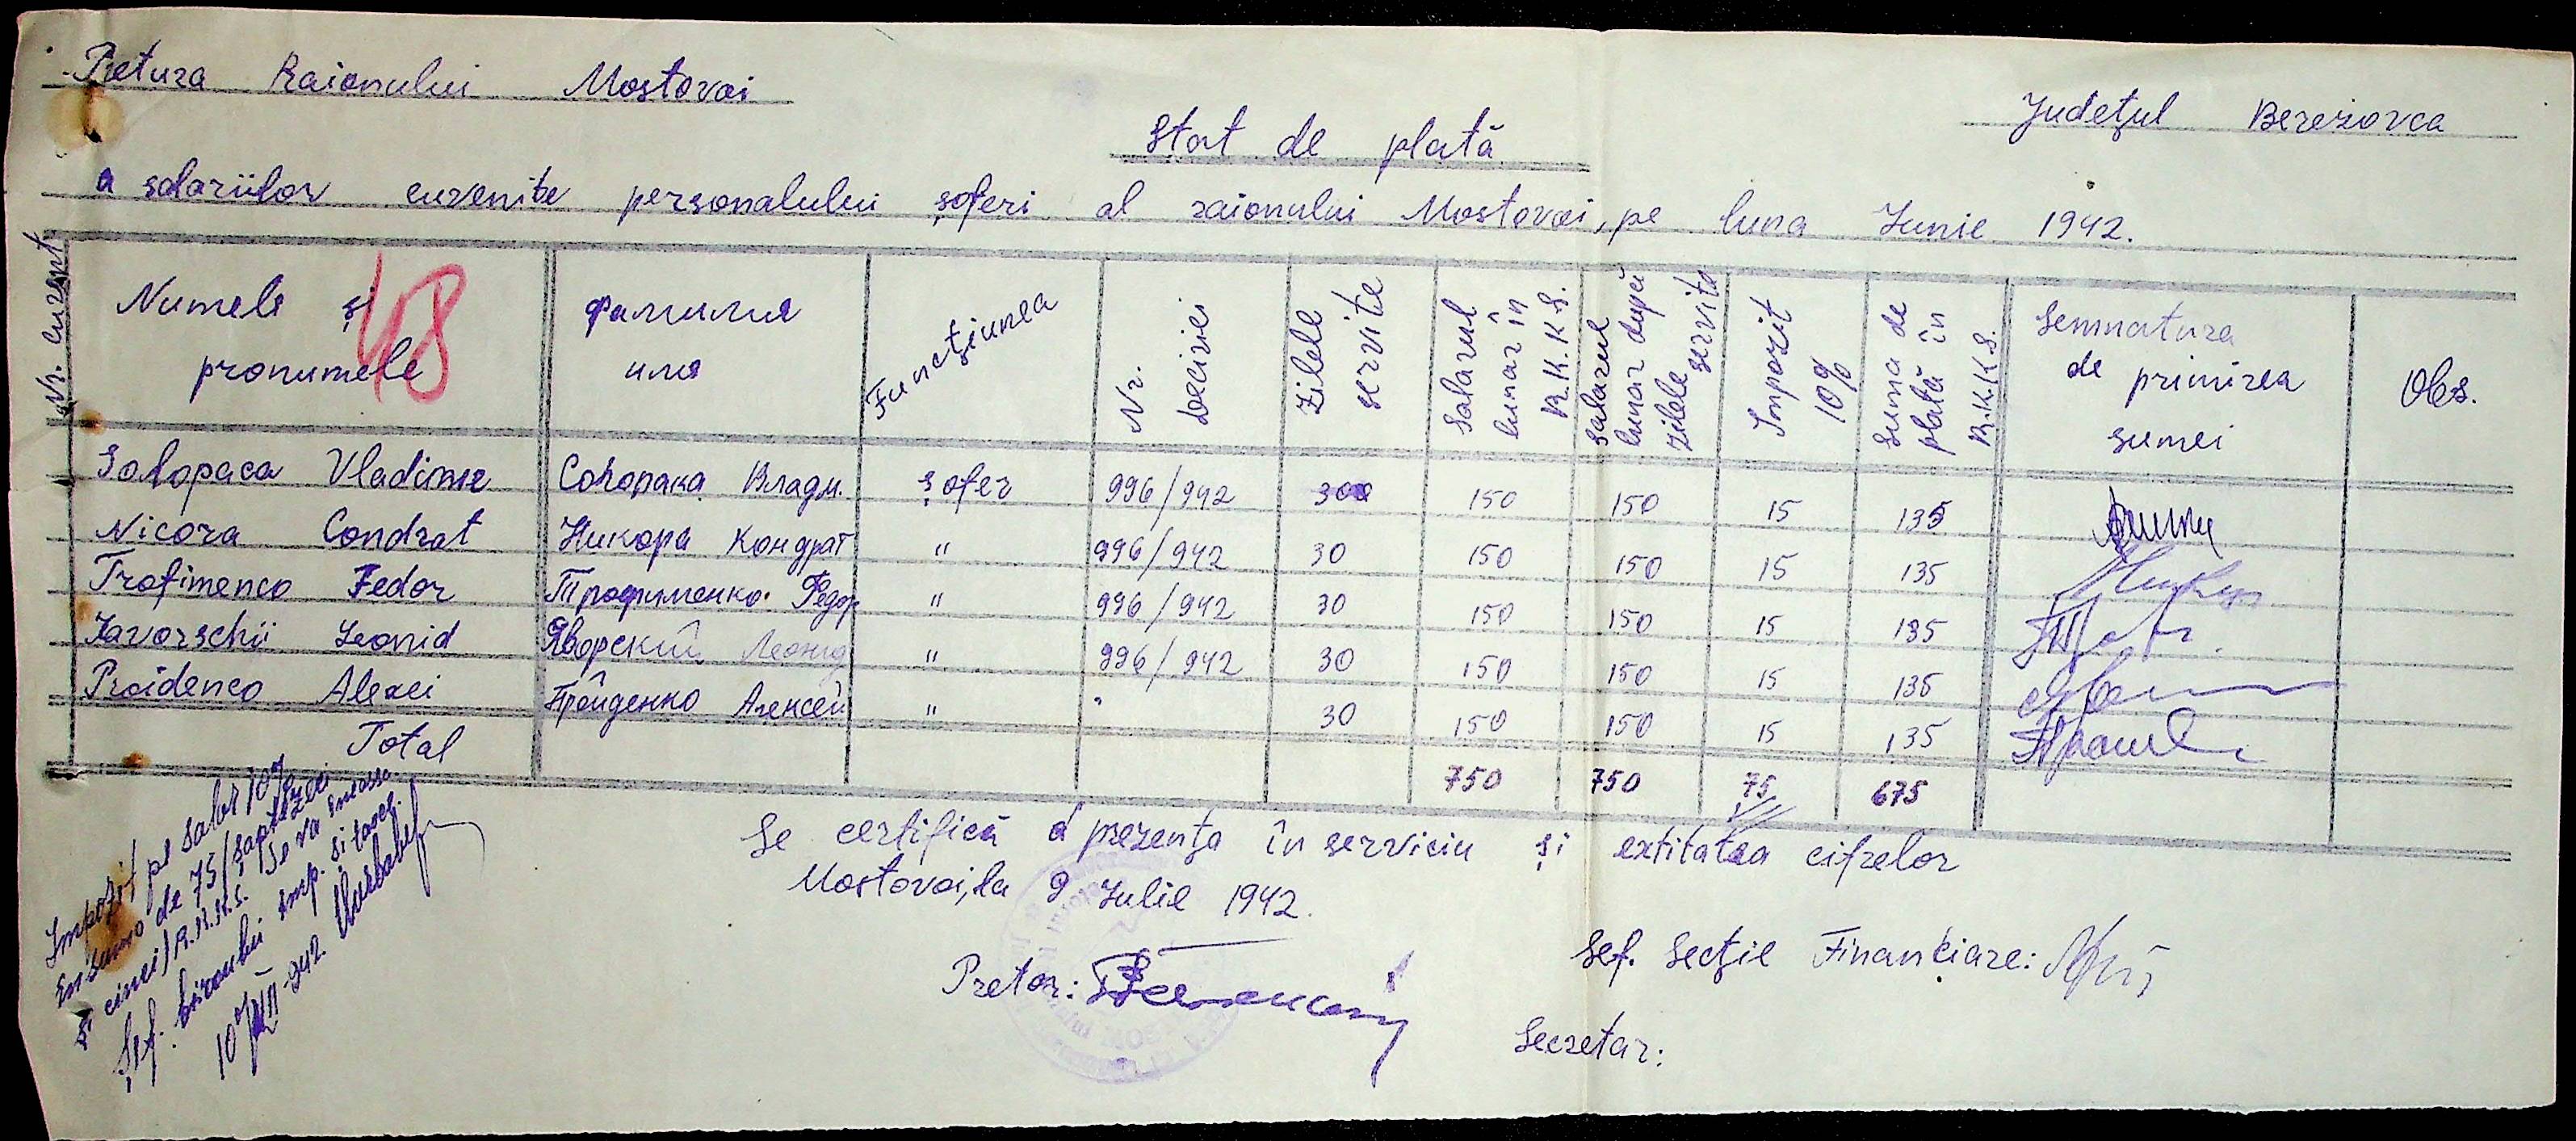 Pretura Raionului Mostovoi
Județul Berezovca
Stat de plată
a salariilor cuvenite personalului șoferi al raionului Mostovoi, pe luna Junie 1942.
Nr. curent
Numele și pronumele
48
Фамилия имя
Funcțiunea
Nr. Deciziei
Zilele servite
Salarul lunar în R.K.K.S.
Salarul lunar după zilele servite
Impozit 10%
Suma de plată în R.K.K.S.
Semnatura de primirea sumei
Obs.
Solopaca Vladimir Солопака Владм. șofer 996/942 30 150 150 15 135
Nicora Condrat Никора Кондрат " 996/942 30 150 150 15 135
Trofimenco Fedor Трофименко Федор " 996/942 30 150 150 15 135
Iavorschii Leonid Яворский Леонид " 996/942 30 150 150 15 135
Proidenco Alexei Пройденко Алексей " " 30 150 150 15 135
Total 750 750 75 675
Se certifică prezența în serviciu și extitatea cifrelor
Mostovoi, la 9 Iulie 1942.
Pretor:
Șef. Secție Financiare:
Secretar:
Impozit pe salar 10%
în suma de 75/șaptezeci
și cinci/R.K.K.S. Se va încassa
Șef. biroului imp. și taxe.
10/VII-942.